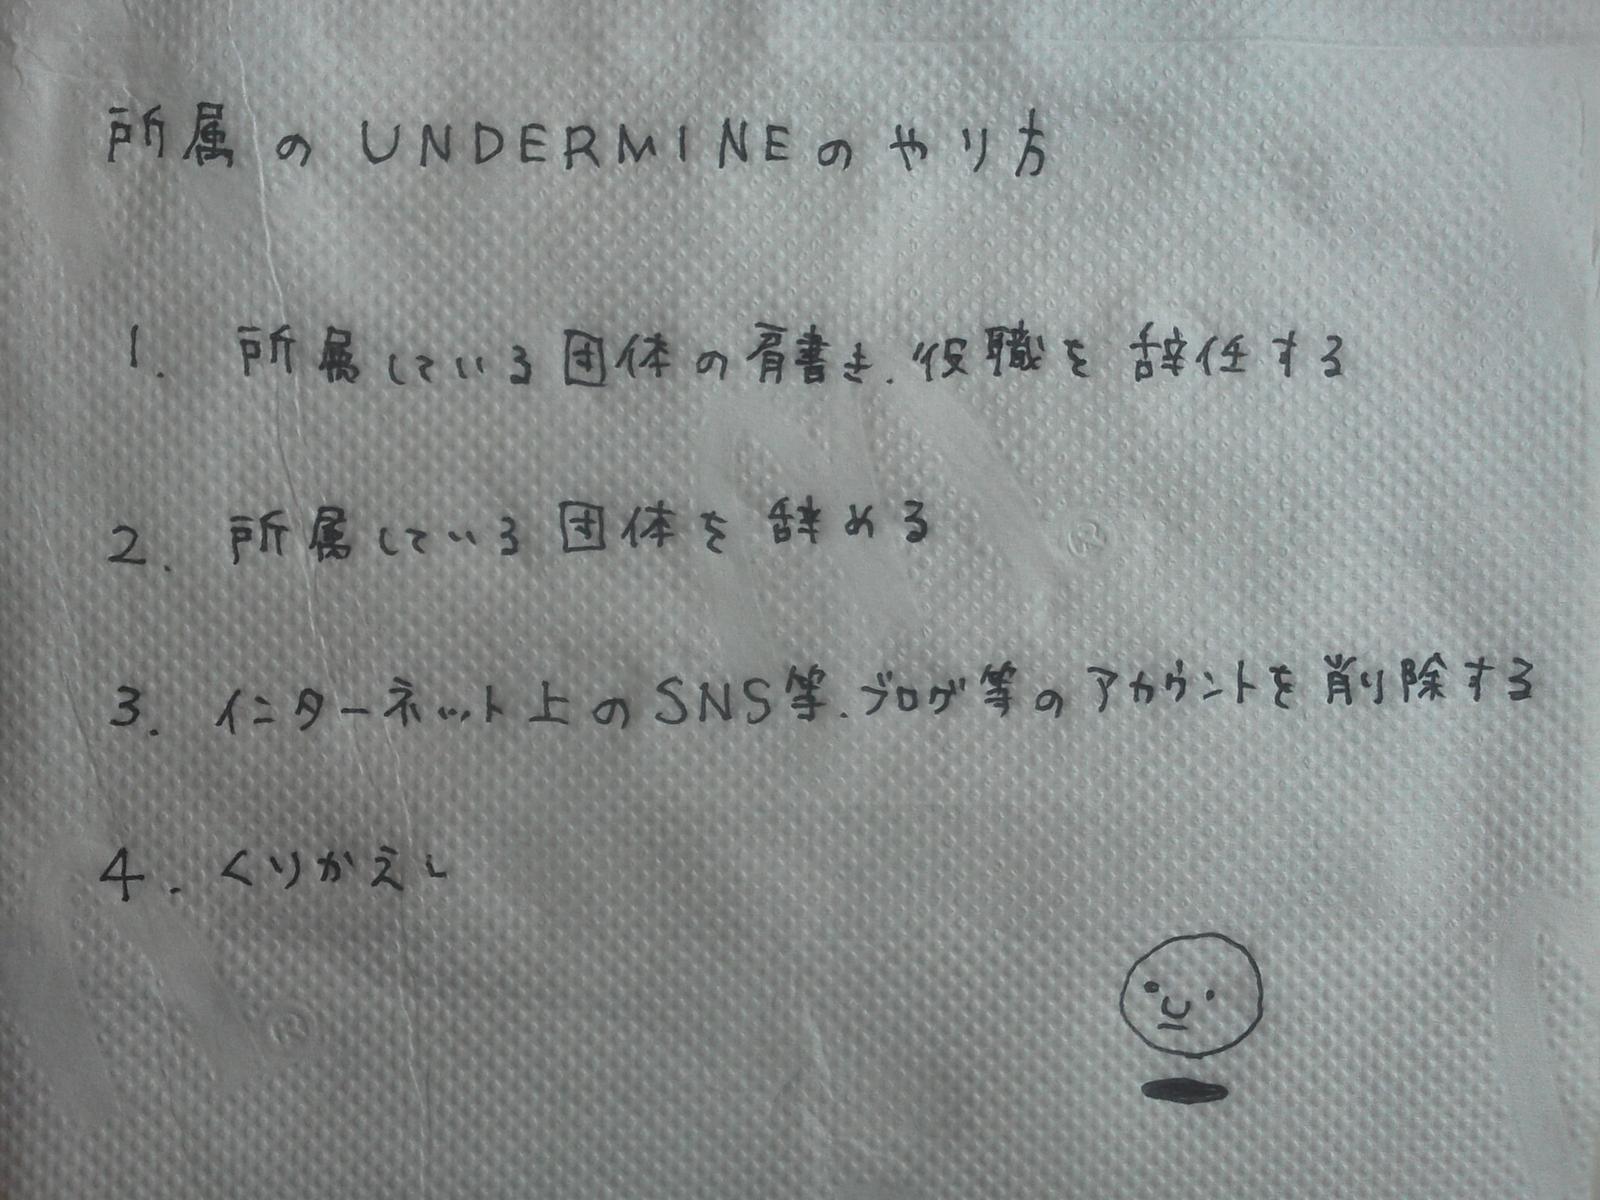 所属のUNDERMINEのやり方
1. 所属している団体の肩書き、役職を辞任する
2. 所属している団体を辞める
3. インターネット上のSNS等、ブログ等のアカウントを削除する
4. くりかえし
®
®